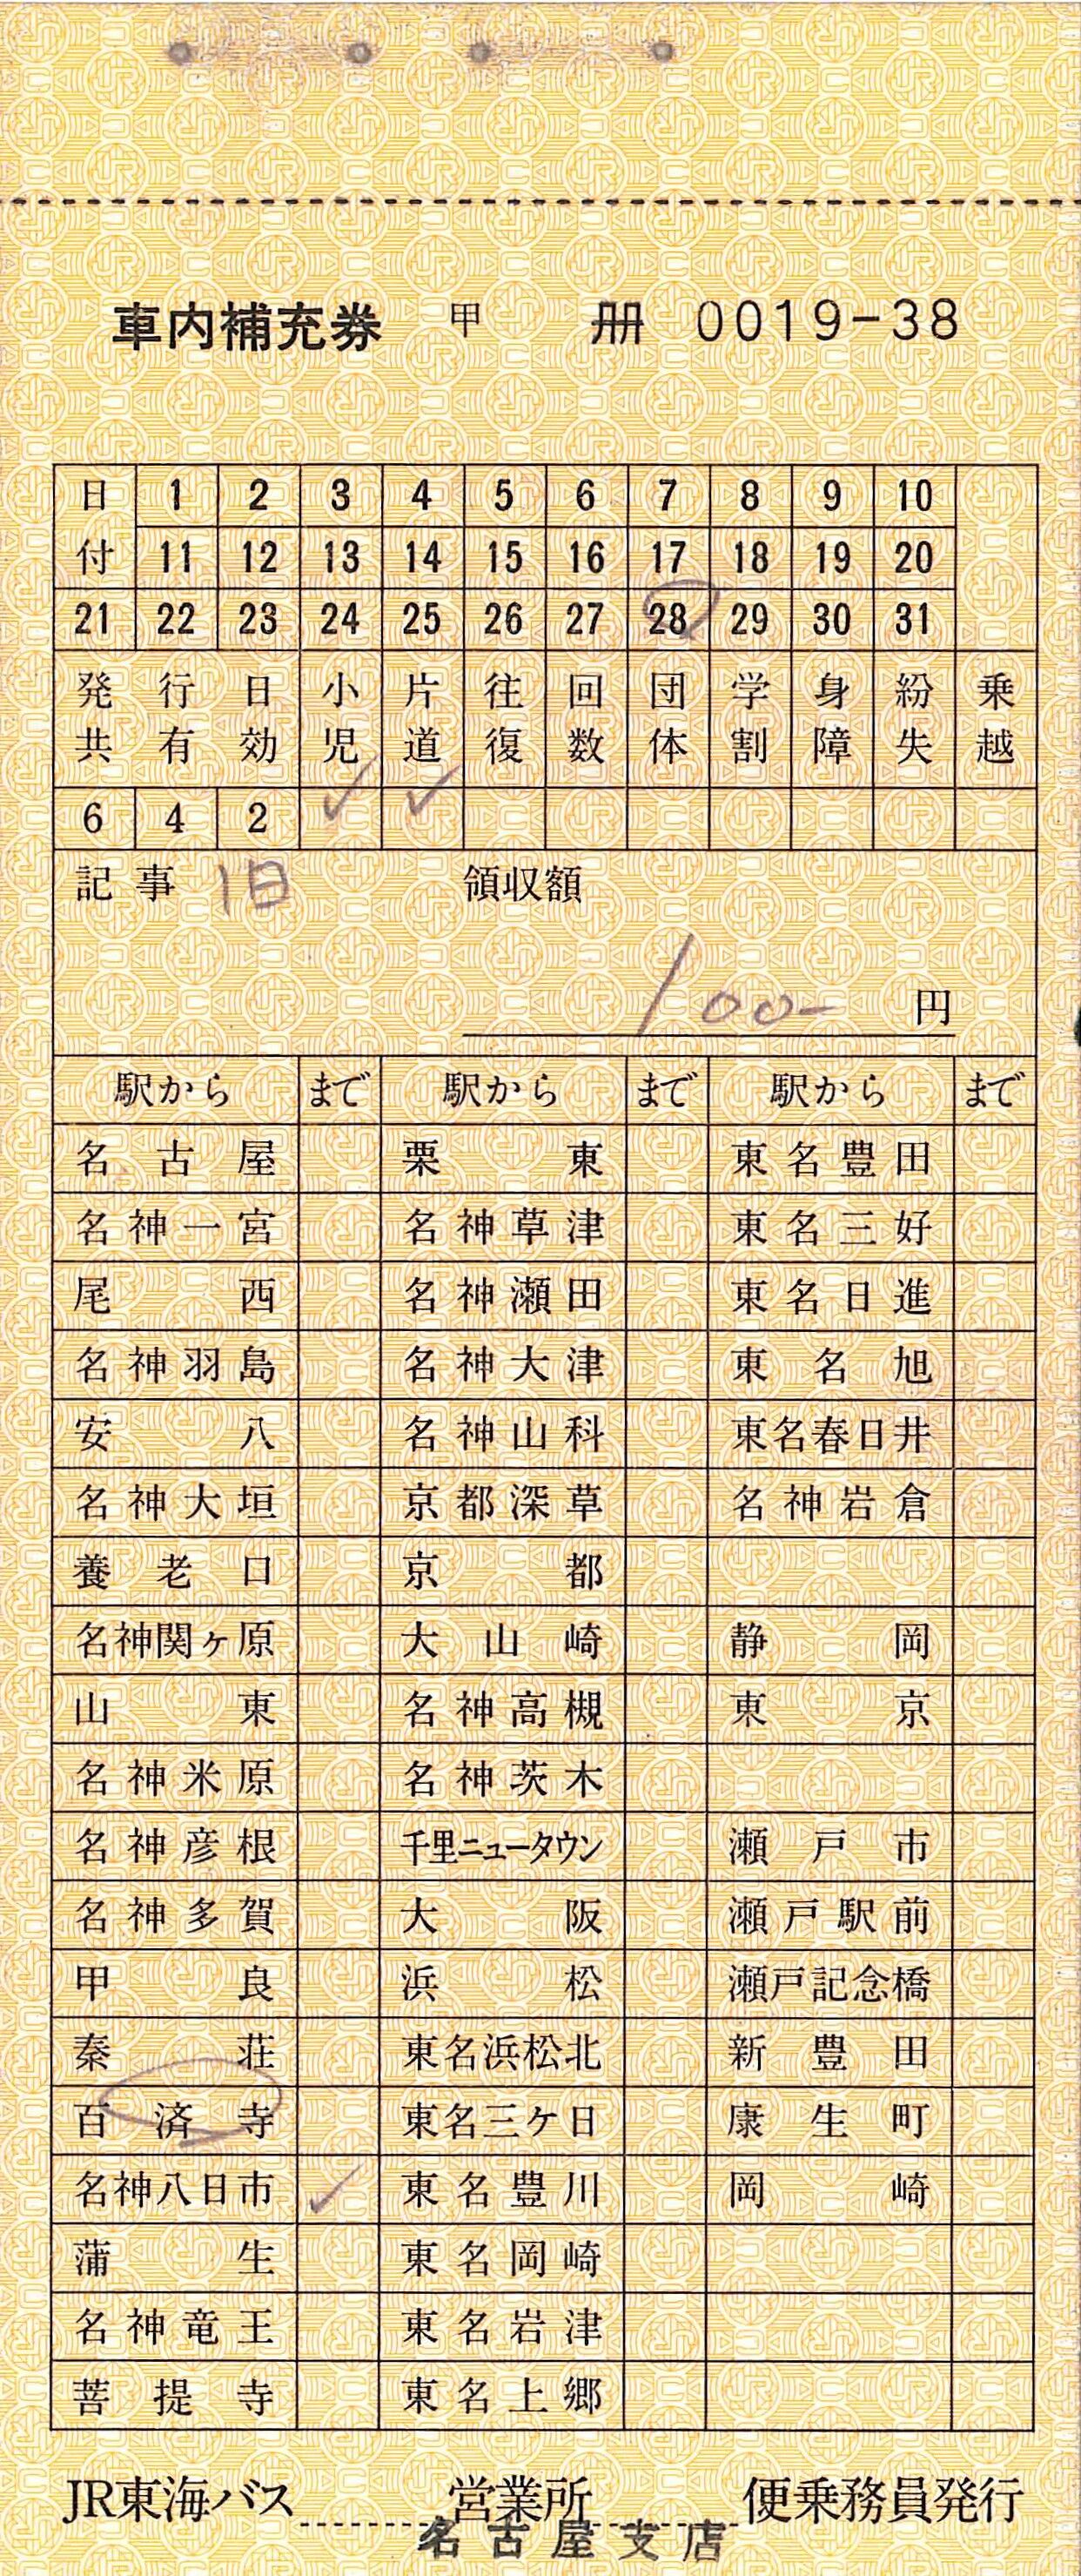 車内補充券 甲 冊 0019-38
日 1 2 3 4 5 6 7 8 9 10
付 11 12 13 14 15 16 17 18 19 20
21 22 23 24 25 26 27 28 29 30 31
発 行 日 小 片 往 回 団 学 身 紛 乗
共 有 効 児 道 復 数 体 割 障 失 越
6 4 2 ✓ ✓
記事 1日 領収額
100- 円
駅から まで 駅から まで 駅から まで
名古屋 栗東 東名豊田
名神一宮 名神草津 東名三好
尾西 名神瀬田 東名日進
名神羽島 名神大津 東名旭
安八 名神山科 東名春日井
名神大垣 京都深草 名神岩倉
養老口 京都
名神関ヶ原 大山崎 静岡
山東 名神高槻 東京
名神米原 名神茨木
名神彦根 千里ニュータウン 瀬戸市
名神多賀 大阪 瀬戸駅前
甲良 浜松 瀬戸記念橋
秦荘 東名浜松北 新豊田
百済寺 東名三ケ日 康生町
名神八日市 ✓ 東名豊川 岡崎
蒲生 東名岡崎
名神竜王 東名岩津
菩提寺 東名上郷
JR東海バス 営業所 便乗務員発行
名古屋支店